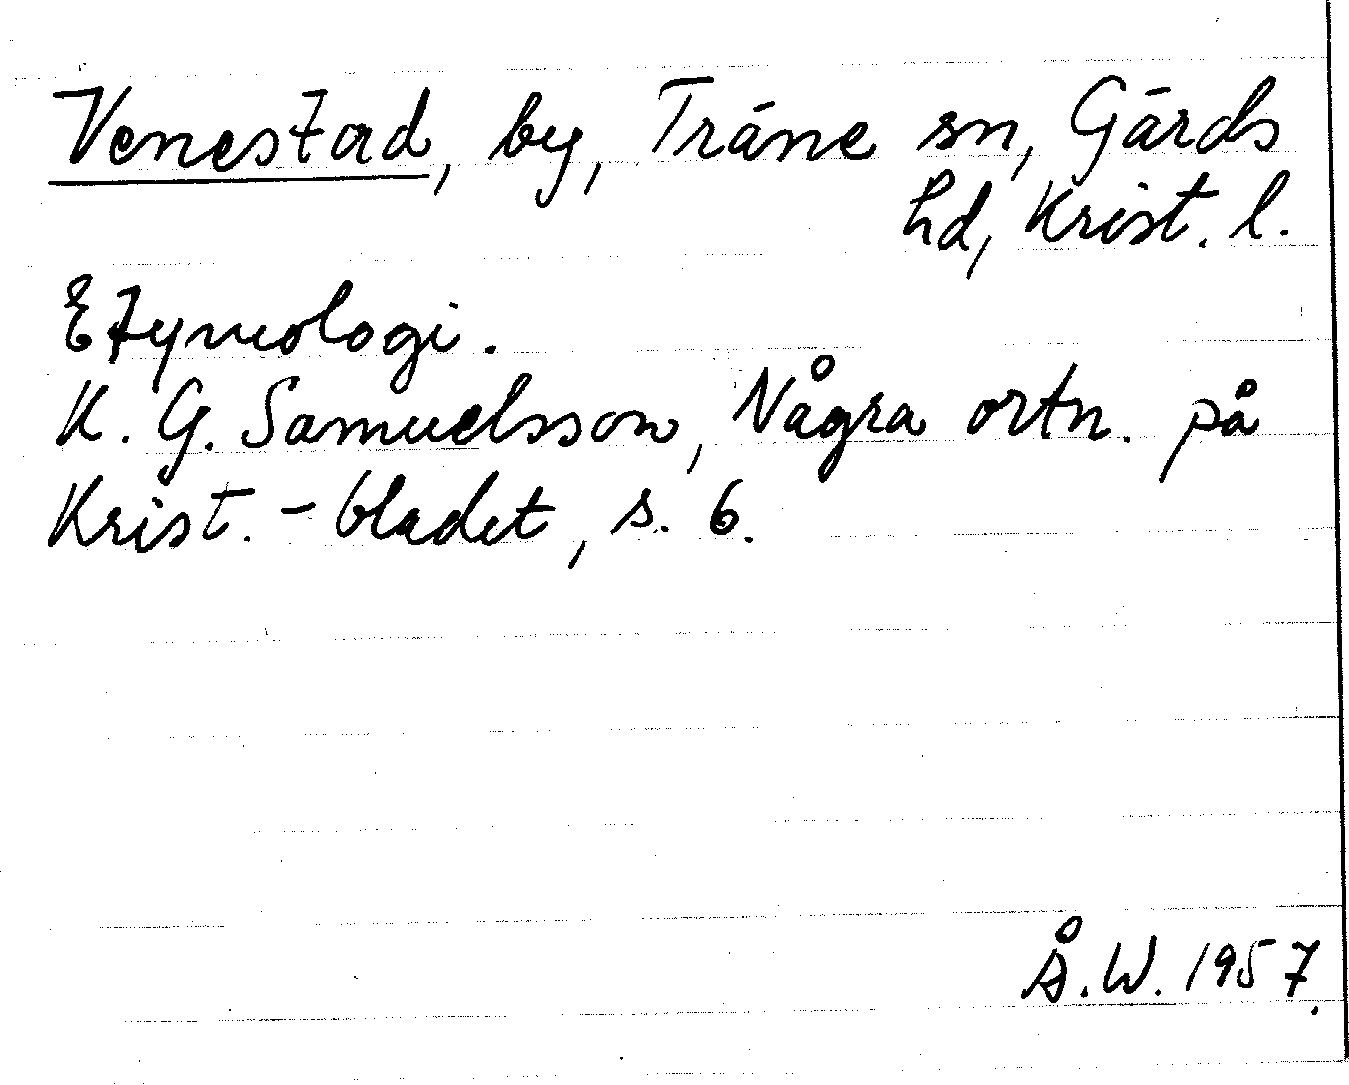 Venestad, by, Träne sn, Gärds
hd, Krist. l.
Etymologi.
K. G. Samuelsson, Några ortn. på
Krist.-bladet, s. 6.
Å.W. 1957.